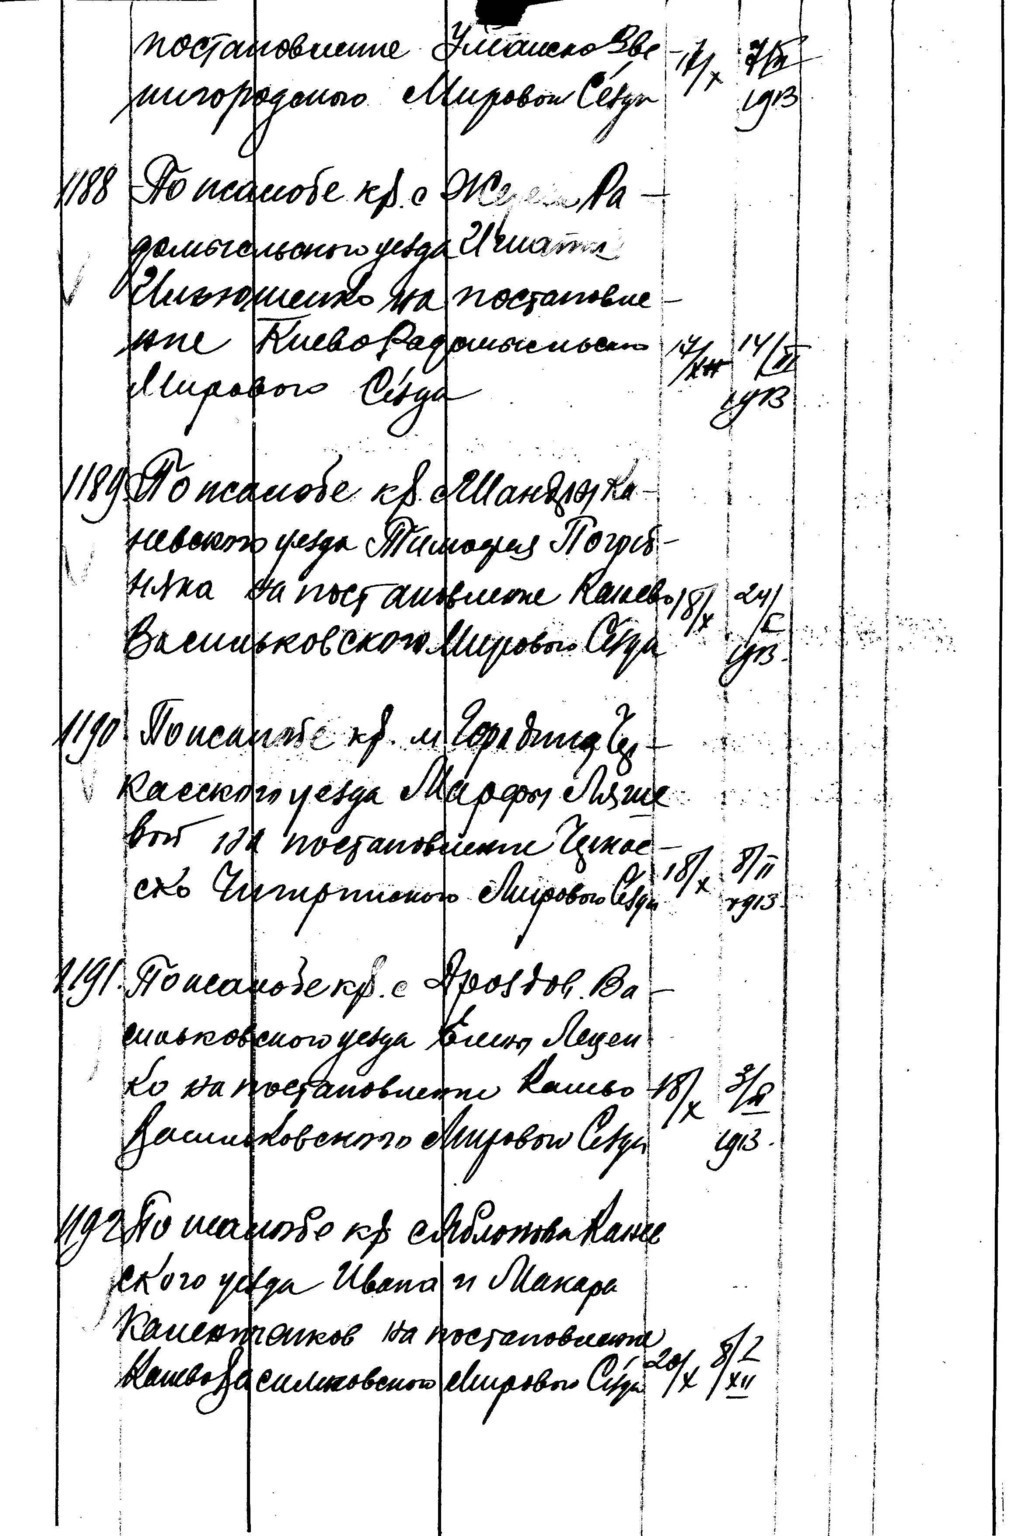 постановление Уманско Зве- 17/X 7/III
нигородского Мирового Съезда 1913
1188 По жалобе кр. с Жерева Ра-
домысльского уезда Игната
Ильюшенко на постановле-
ние Киево Радомысльского 17/XII 14/III
Мирового Съезда 1913
1189 По жалобе кр. с Ка-
невского уезда Тимофея Погреб-
няка на постановление Канево 18/X 24/I
Васильковского Мирового Съезда 1913.
1190 По жалобе кр. м Городища Чер-
касского уезда Марфы Ляше
вой на постановление Черкас-
ско Чигиринского Мирового Съезда 18/X 8/II 1913.
1191. По жалобе кр. с Дроздов. Ва-
сильковского уезда Елены Лецен
ко на постановление Канево 18/X 3/II
Васильковского Мирового Съезда 1913.
1192 По жалобе кр с Яблонова Канев
ского уезда Ивана и Макара
на постановление
Канево Васильковского Мирового Съезда 20/X 8/XII